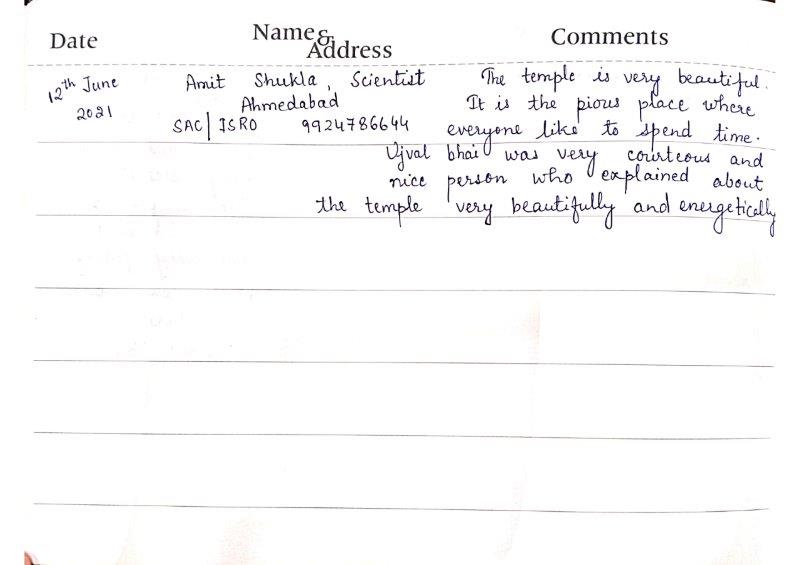 Date Name & Address Comments
12th June 2021
Amit Shukla, Scientist
Ahmedabad
SAC | ISRO 9924786644
The temple is very beautiful.
It is the pious place where
everyone like to spend time.
Ujval bhai was very courteous and
nice person who explained about
the temple very beautifully and energetically